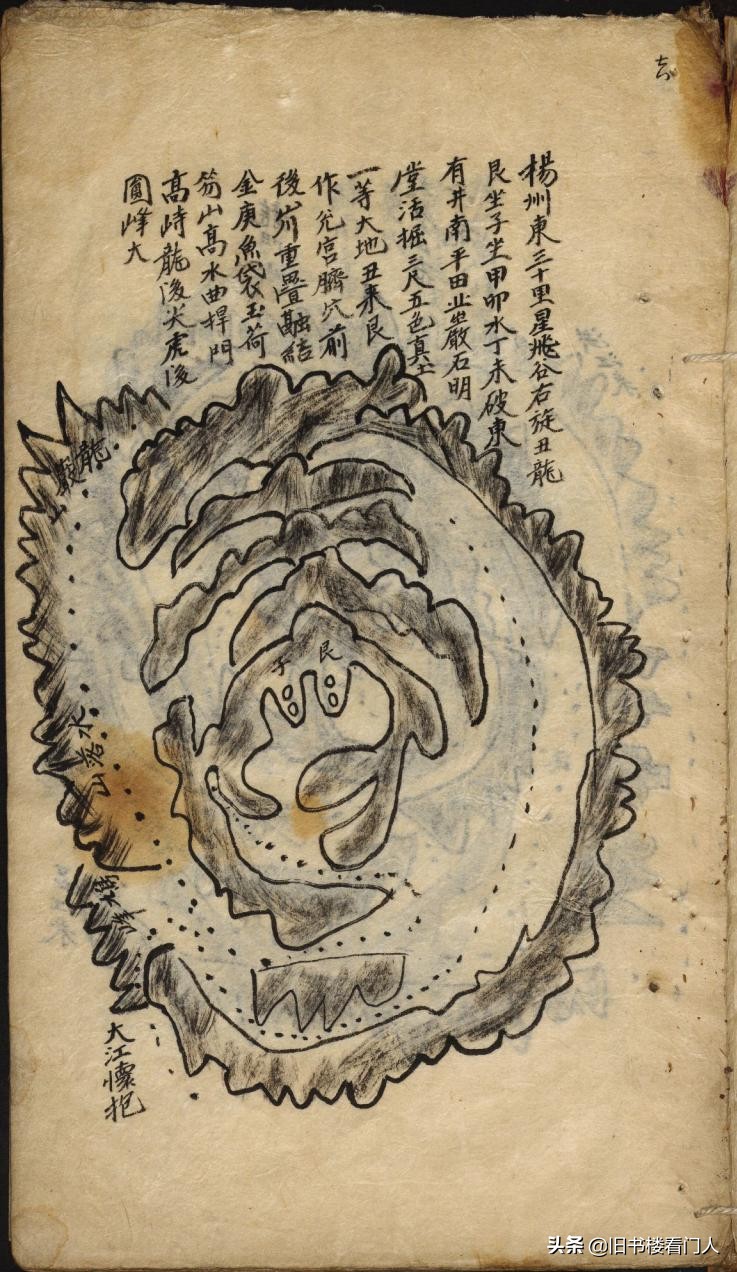 去
楊州東三十里星飛谷右旋丑龍
艮坐子坐甲卯水丁未破東
有井南平田止坐嚴石明
堂活掘三尺五色真土
一等大地丑來艮
作兊宮臍穴前
後岺重疊融結
金庚魚袋玉荷
笏山高水曲捍門
高峙龍後尖虎後
圓峰大
龍
山
子
艮
水
落
山
大江懷抱
头条 @旧书楼看门人